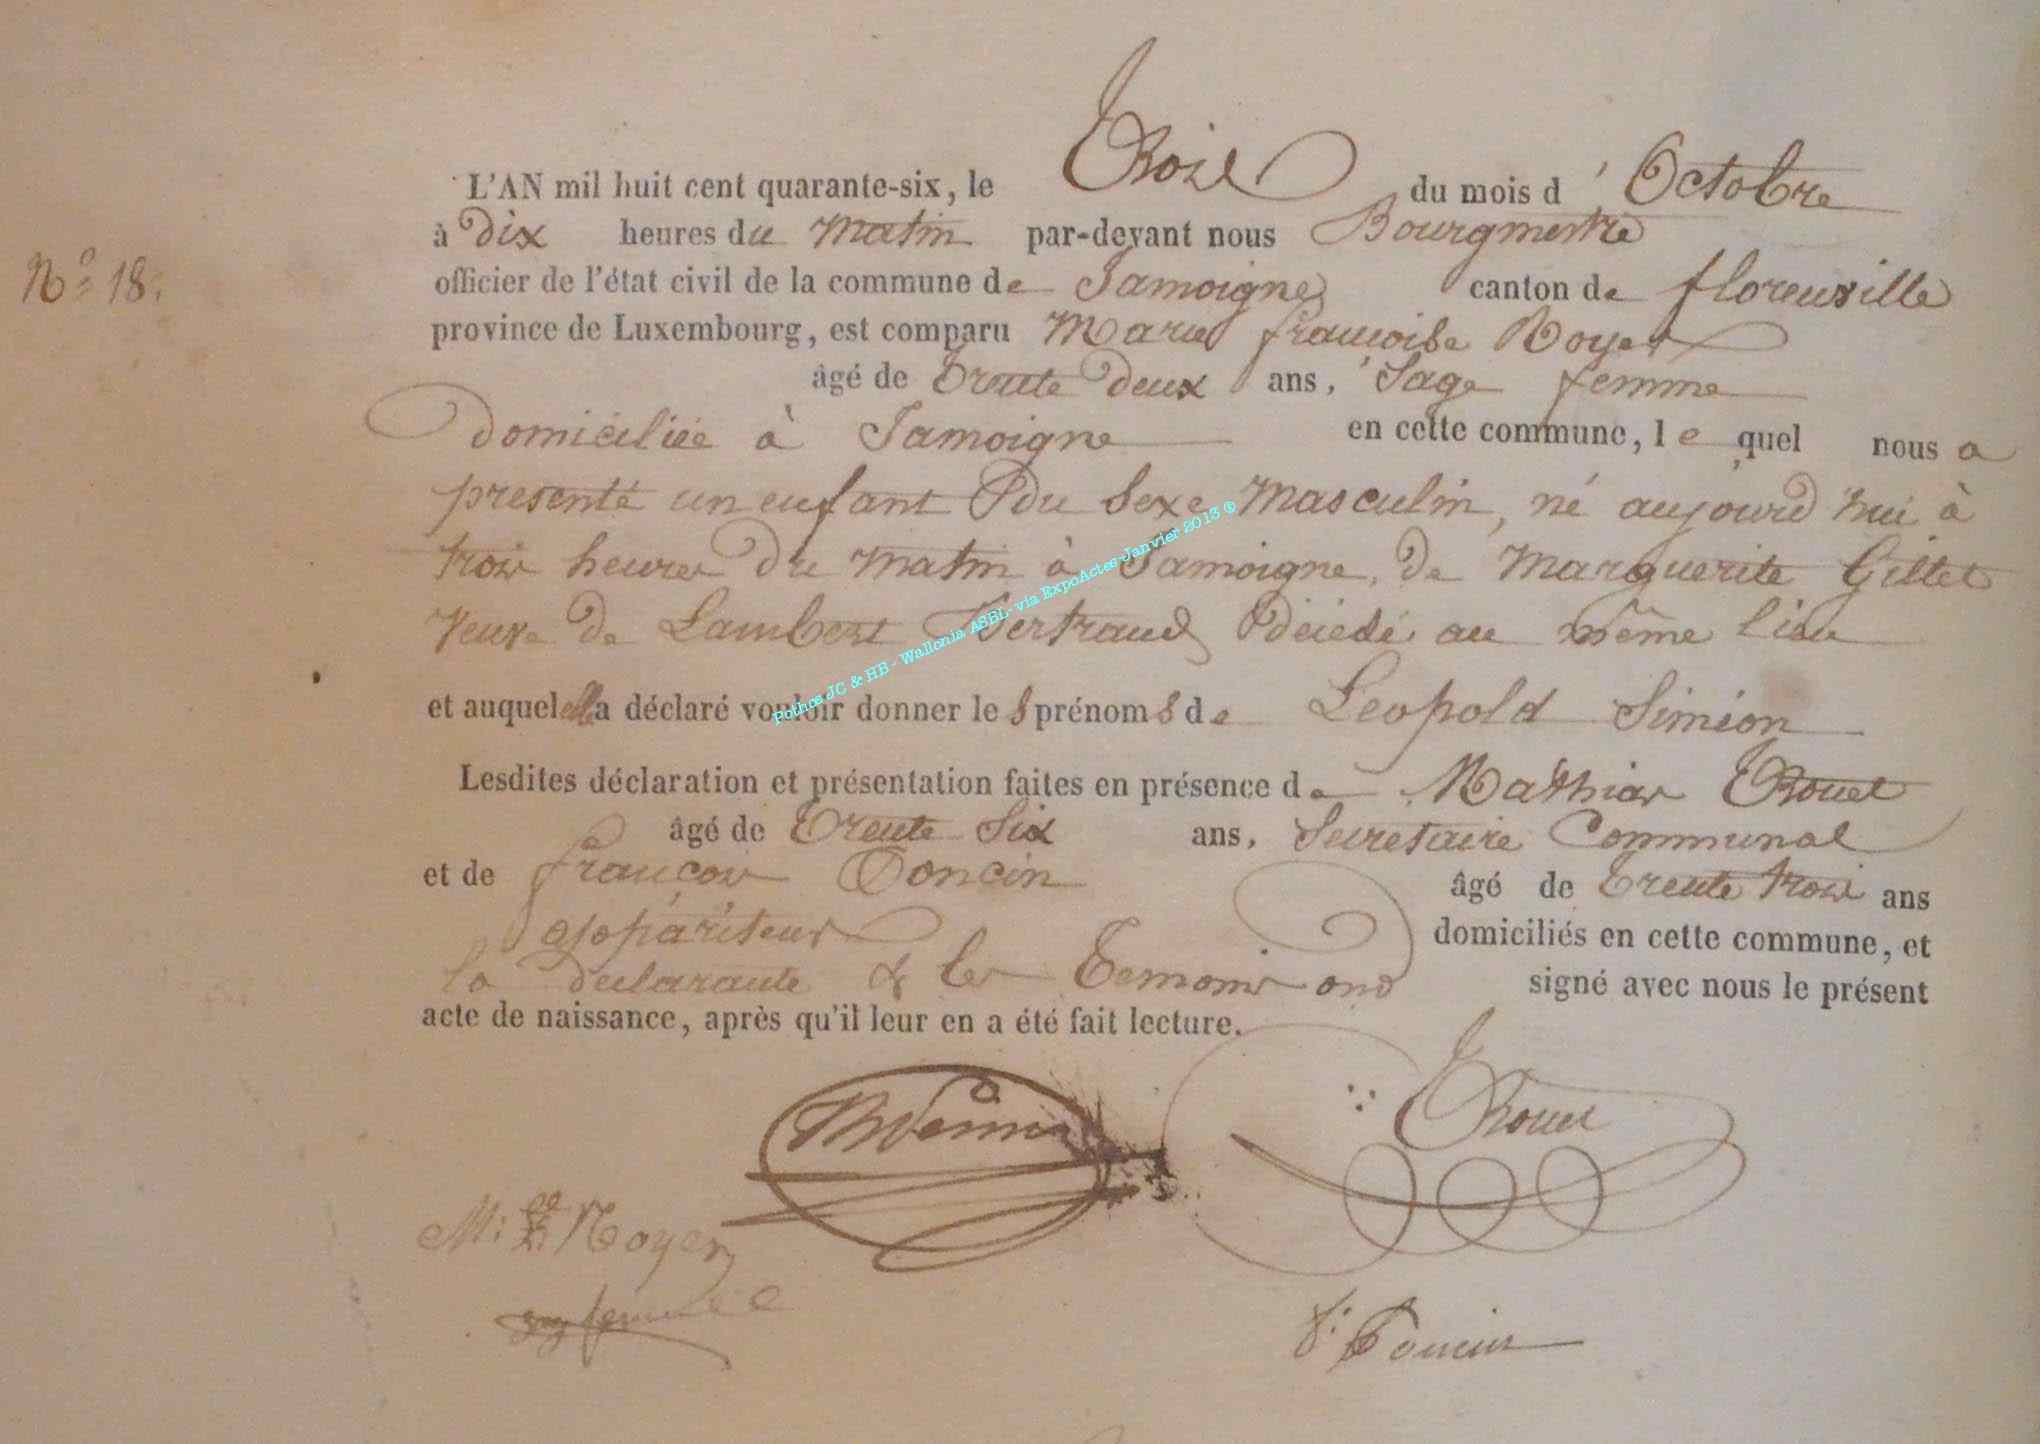 L'AN mil huit cent quarante-six, le Trois du mois d'Octobre
à Dix heures du Matin par-devant nous Bourgmestre
N° 18.
officier de l'état civil de la commune de Jamoigne canton de florenville
province de Luxembourg, est comparu Marie françoise Noyer
âgé de Trente Deux ans, Sage femme
Domiciliée à Jamoigne en cette commune, le quel nous a
présenté un enfant Du Sexe Masculin, né aujourd'hui à
trois heures Du Matin à Jamoigne, De Marguerite Gillet
Veuve De Lambert Bertrand Décédé au même lieu
et auquel elle a déclaré vouloir donner les prénoms de Leopold Siméon
Lesdites déclaration et présentation faites en présence de Mathias Trouet
âgé de Trente Six ans, Secretaire Communal
et de françois Toncin âgé de Trente trois ans
appariteur domiciliés en cette commune, et
la Declarante & les Temoins ont signé avec nous le présent
acte de naissance, après qu'il leur en a été fait lecture.
Trouet
M: Noyer
femme
f: Toncin
Pothos JC & HB - Wallonia ASBL- via ExpoActes-Janvier 2013 ®